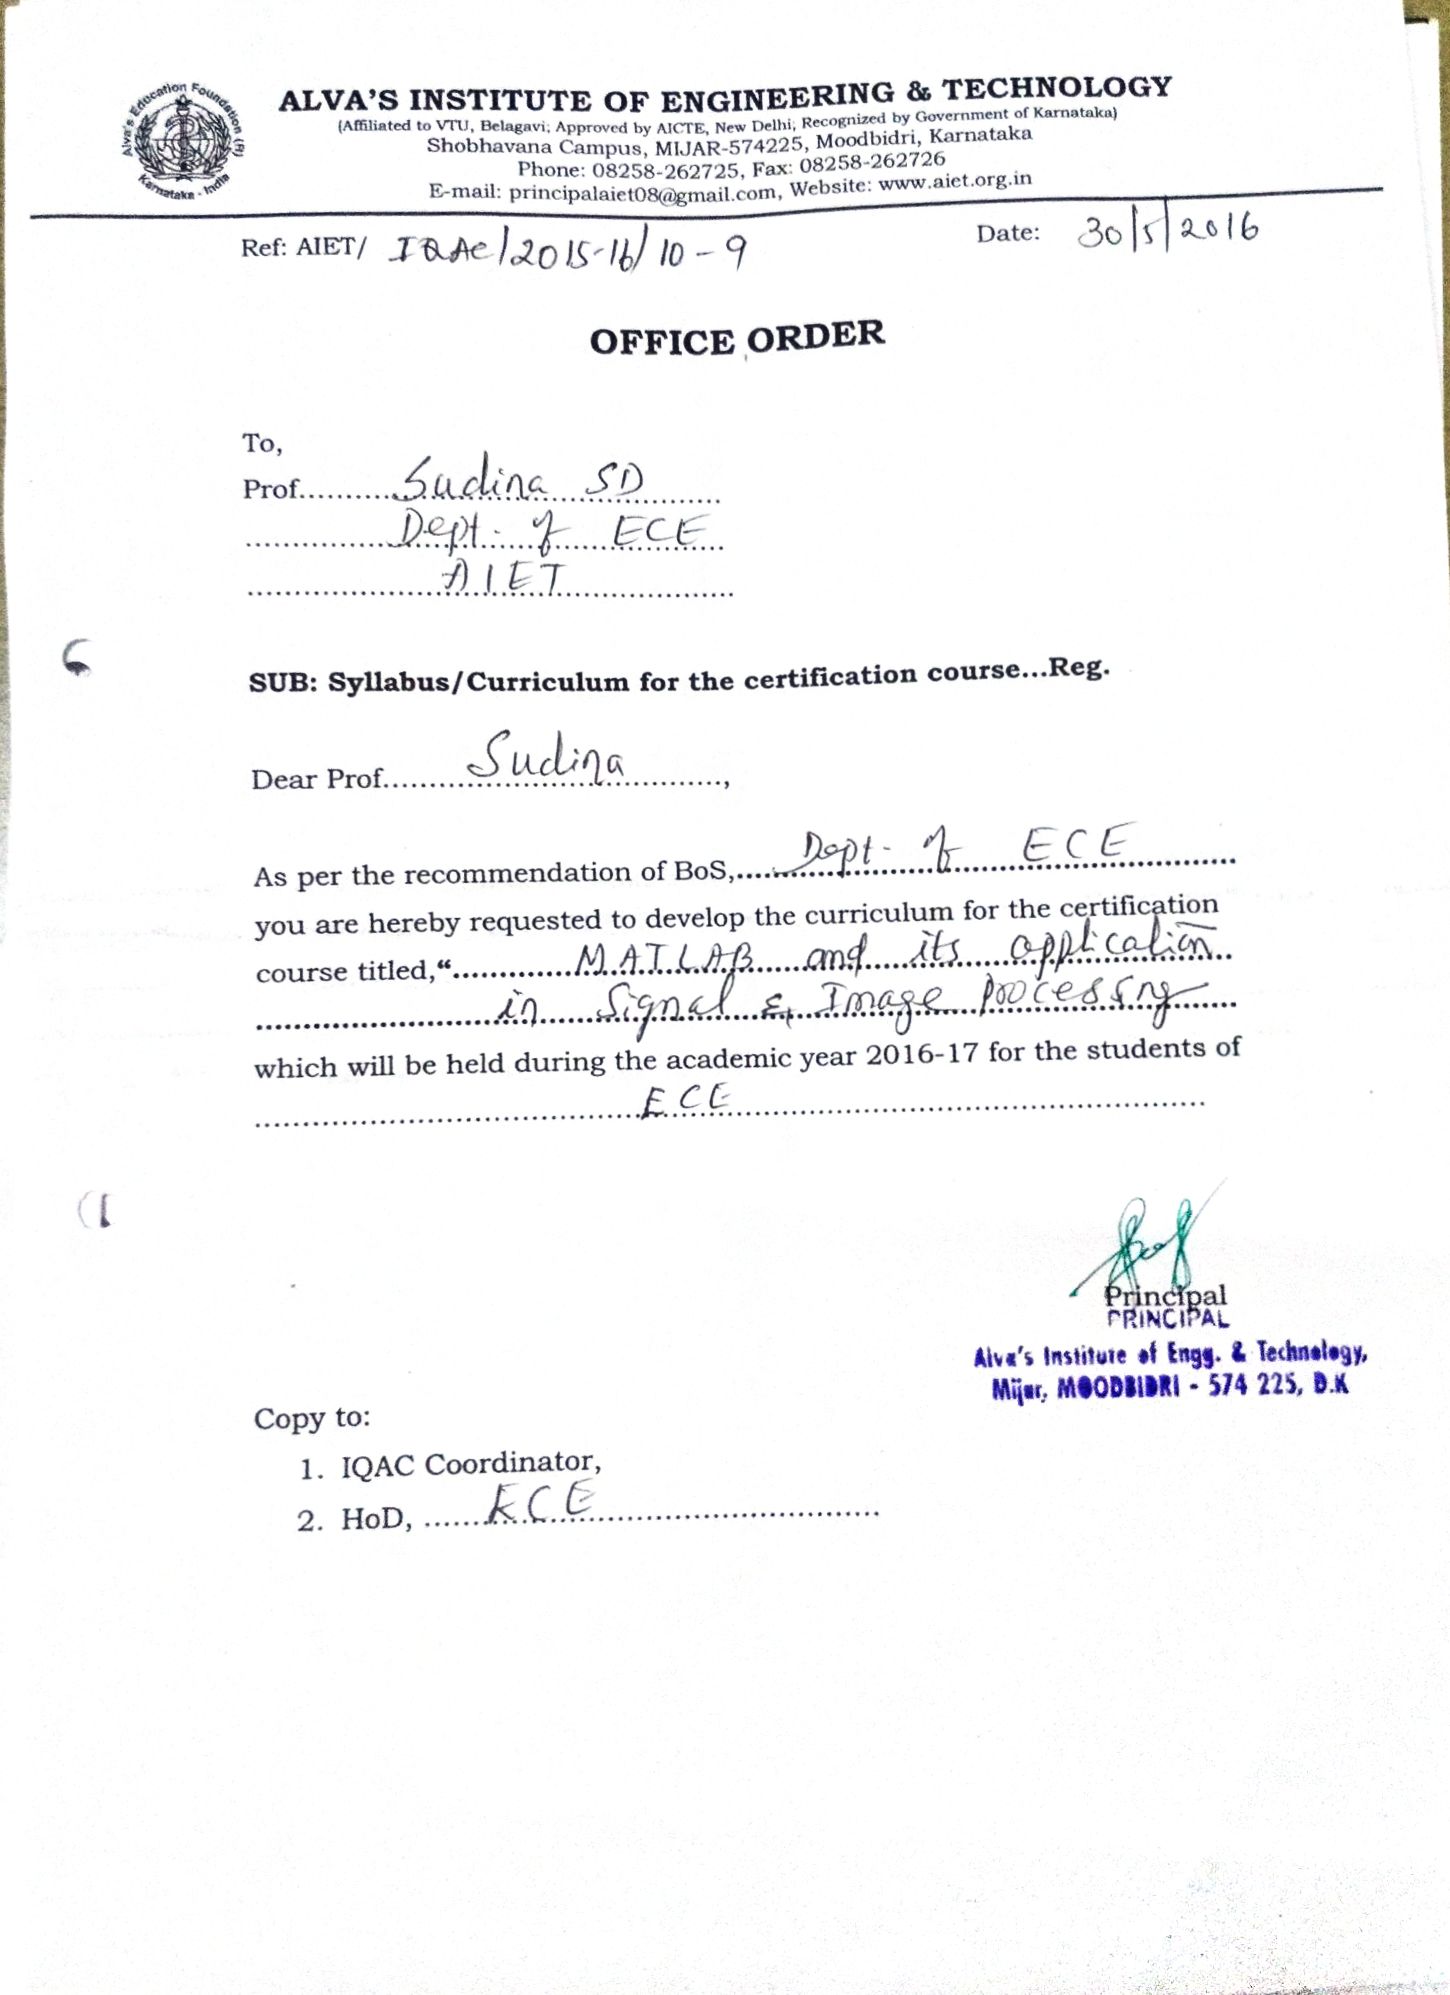 Alva's Education Foundation (R)
Karnataka - India
ALVA'S INSTITUTE OF ENGINEERING & TECHNOLOGY
(Affiliated to VTU, Belagavi; Approved by AICTE, New Delhi; Recognized by Government of Karnataka)
Shobhavana Campus, MIJAR-574225, Moodbidri, Karnataka
Phone: 08258-262725, Fax: 08258-262726
E-mail: principalaiet08@gmail.com, Website: www.aiet.org.in
Ref: AIET/ IQAC/2015-16/10-9 Date: 30/5/2016
OFFICE ORDER
To,
Prof..........Sudina SD
Dept. of ECE
AIET
SUB: Syllabus/Curriculum for the certification course...Reg.
Dear Prof..........Sudina..........,
As per the recommendation of BoS,.....Dept. of ECE
you are hereby requested to develop the curriculum for the certification
course titled,“.............MATLAB and its application
in Signal & Image Processing
which will be held during the academic year 2016-17 for the students of
ECE
Principal
PRINCIPAL
Alva's Institute of Engg. & Technology,
Mijar, MOODBIDRI - 574 225, D.K
Copy to:
1. IQAC Coordinator,
2. HoD, .......ECE